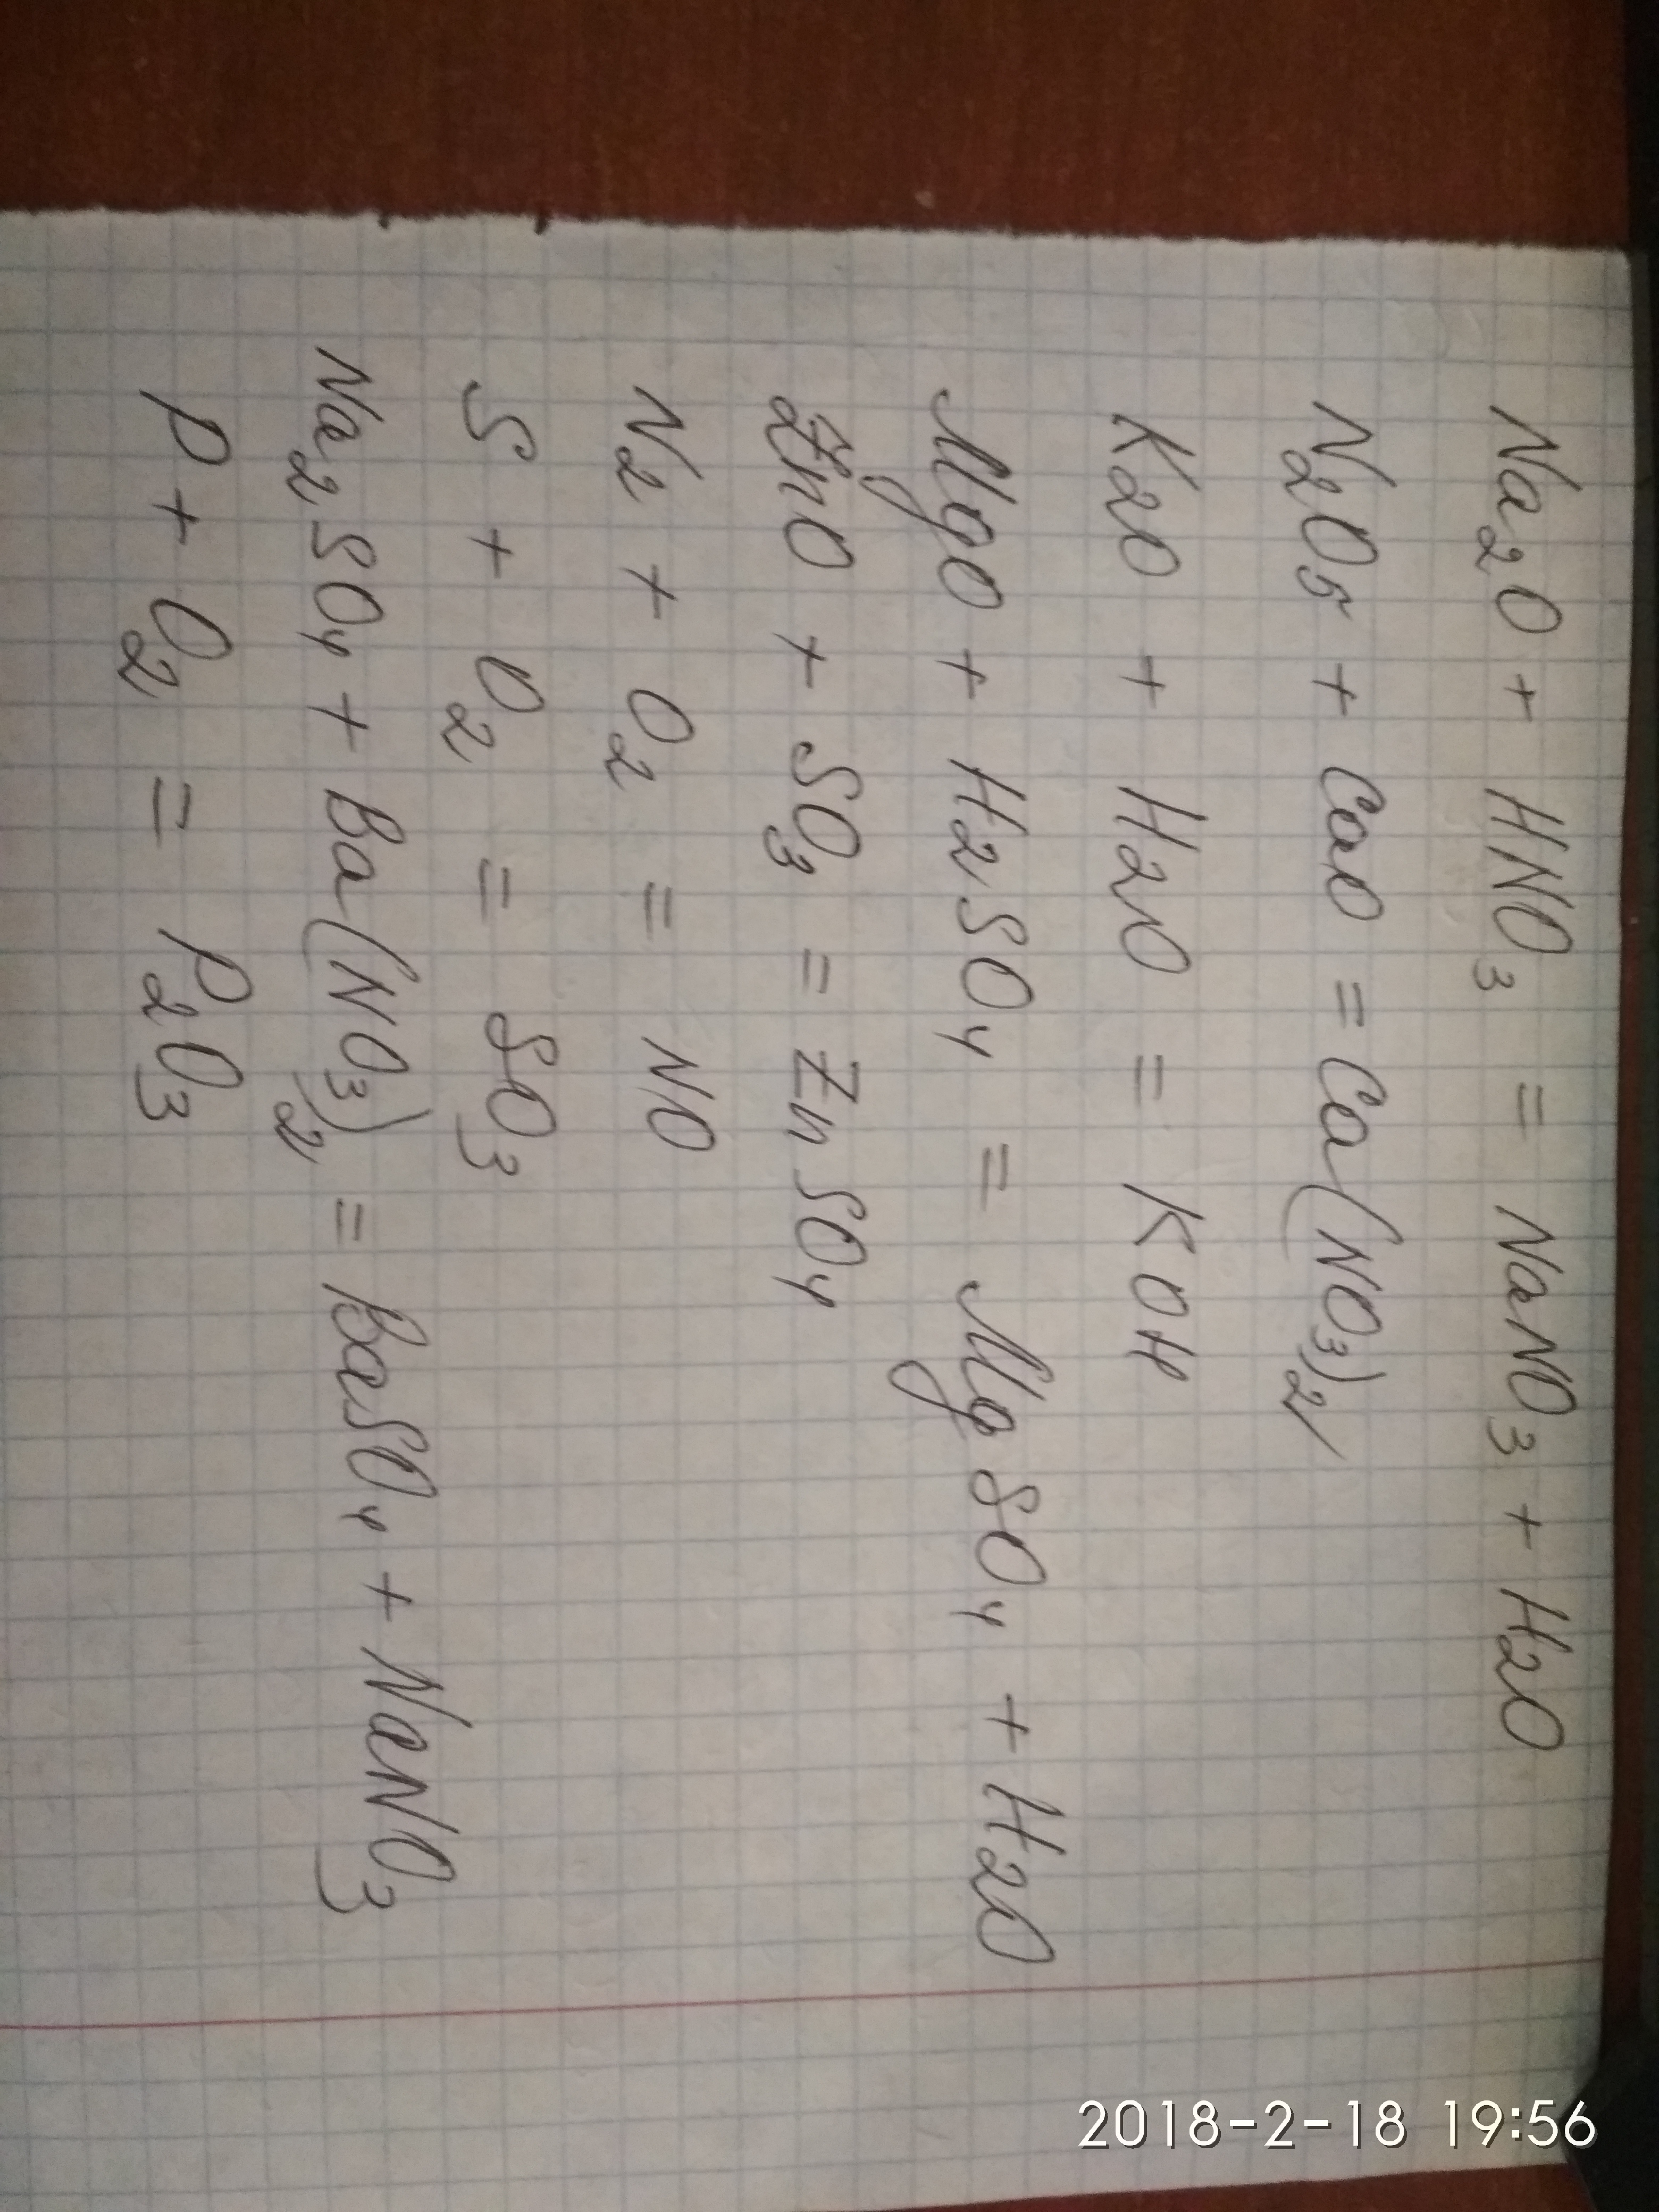 Na₂O + HNO₃ = NaNO₃ + H₂O
N₂O₅ + CaO = Ca(NO₃)₂
K₂O + H₂O = KOH
MgO + H₂SO₄ = MgSO₄ + H₂O
ZnO + SO₃ = ZnSO₄
N₂ + O₂ = NO
S + O₂ = SO₃
Na₂SO₄ + Ba(NO₃)₂ = BaSO₄ + NaNO₃
P + O₂ = P₂O₃
2018-2-18 19:56